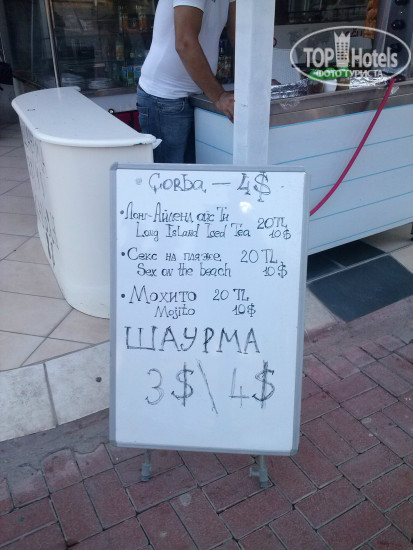 TOPHotels
ФОТО ТУРИСТА
Çorba — 4$
• Лонг-Айленд айс Ти 20 TL
Long Island Iced Tea 10$
• Секс на пляже, 20 TL
Sex on the beach 10$
• Мохито 20 TL
Mojito 10$
ШАУРМА
3$\4$